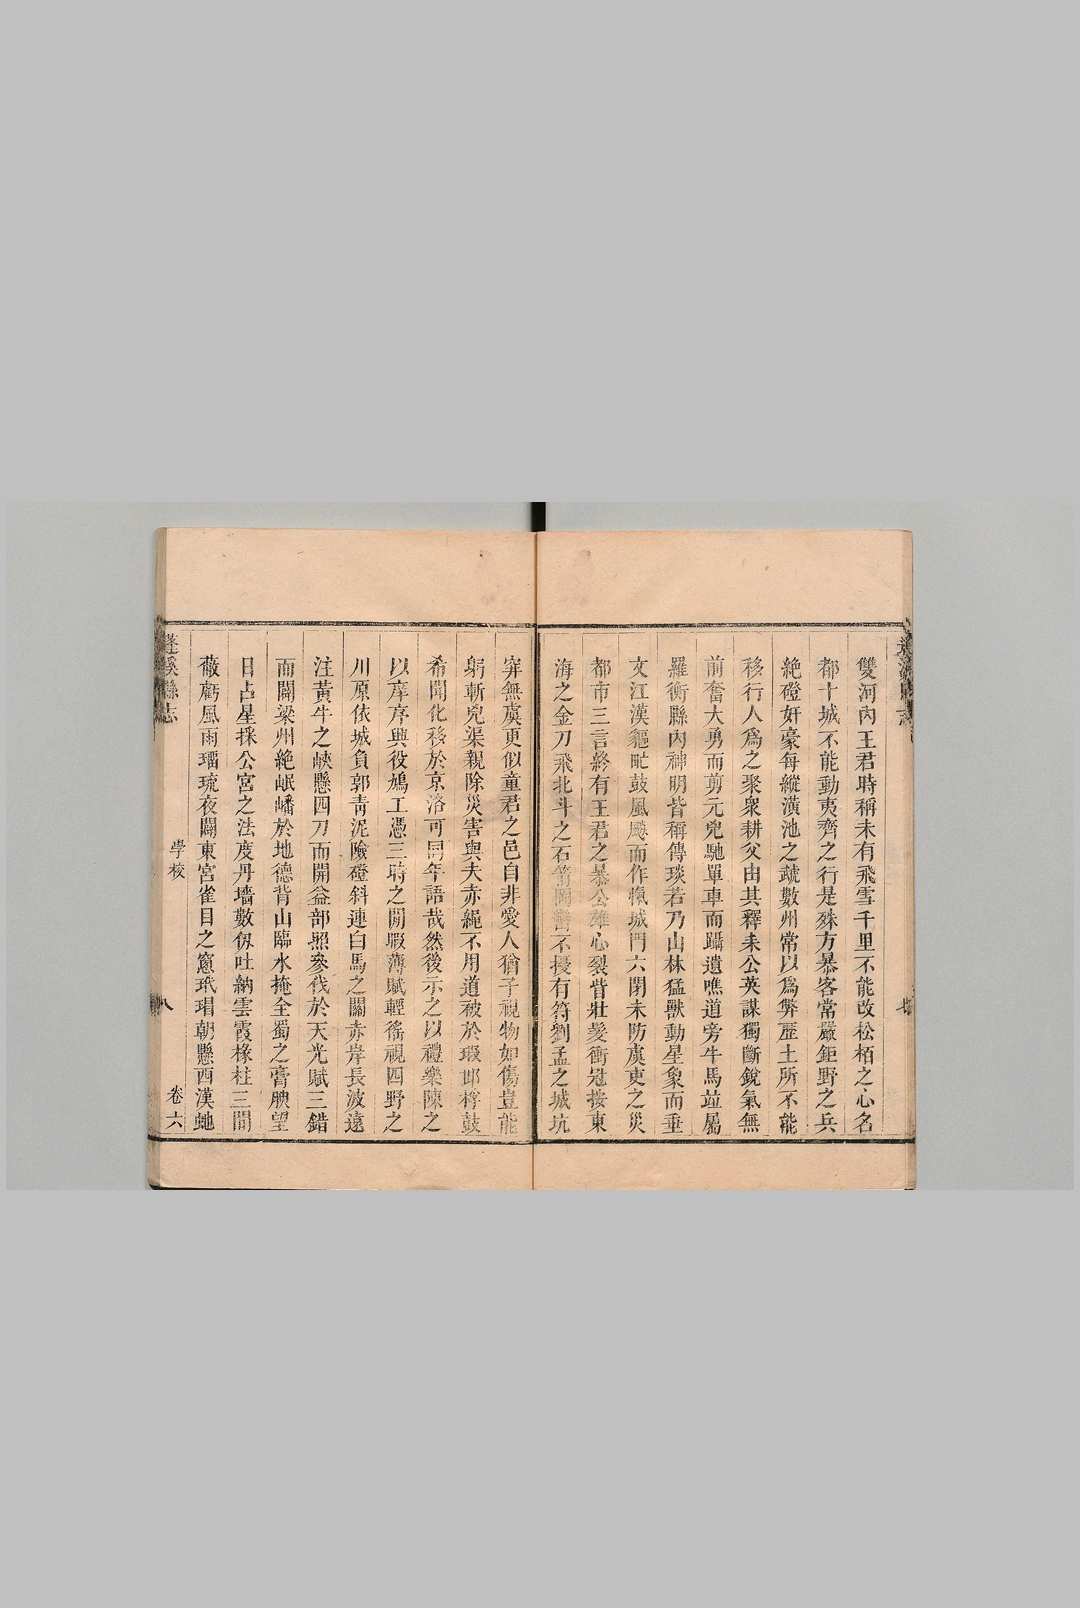 雙河內王君時稱未有飛雪千里不能改松栢之心名
都十城不能動夷齊之行是殊方暴客常嚴鉅野之兵
絶磴奸豪每縱潢池之虣數州常以為弊歷土所不能
移行人為之聚衆耕父由其釋耒公英謀獨斷銳氣無
前奮大勇而剪元兇馳單車而躡遺噍道旁牛馬並屬
羅衡縣內神明皆稱傳琰若乃山林猛獸動星象而垂
文江漢貙甿鼓風飈而作㡣城門六閉未防虞吏之災
都市三言終有王君之暴公雄心裂眥壯髮衝冠按東
海之金刀飛北斗之石箭岡巒不擾有符劉孟之城坑
穽無虞更似童君之邑自非愛人猶子視物如傷豈能
躬斬兇渠親除災害與夫赤繩不用道被於瑕邱桴鼓
希聞化移於京洛可同年語哉然後示之以禮樂陳之
以庠序興役鳩工憑三時之閒暇薄賦輕徭視四野之
川原依城負郭靑泥險磴斜連白馬之關赤岸長波遠
注黃牛之峽懸四刀而開益部照參伐於天光賦三錯
而闢梁州絶岷嶓於地德背山臨水掩全蜀之膏腴望
日占星採公宮之法度丹墻數仞吐納雲霞椽柱三間
蔽虧風雨瑠琉夜闢東宮雀目之窻玳瑁朝懸西漢虵
蓬溪縣志
學校
八
卷六